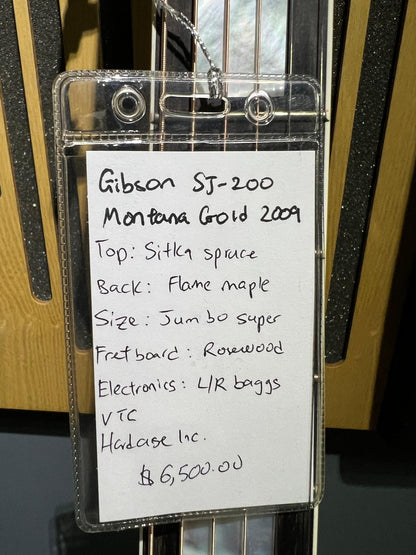 Gibson SJ-200
Montana Gold 2009
Top: Sitka spruce
Back: Flame maple
Size: Jumbo super
Fretboard: Rosewood
Electronics: L/R baggs
VTC
Hardcase Inc.
$6,500.00